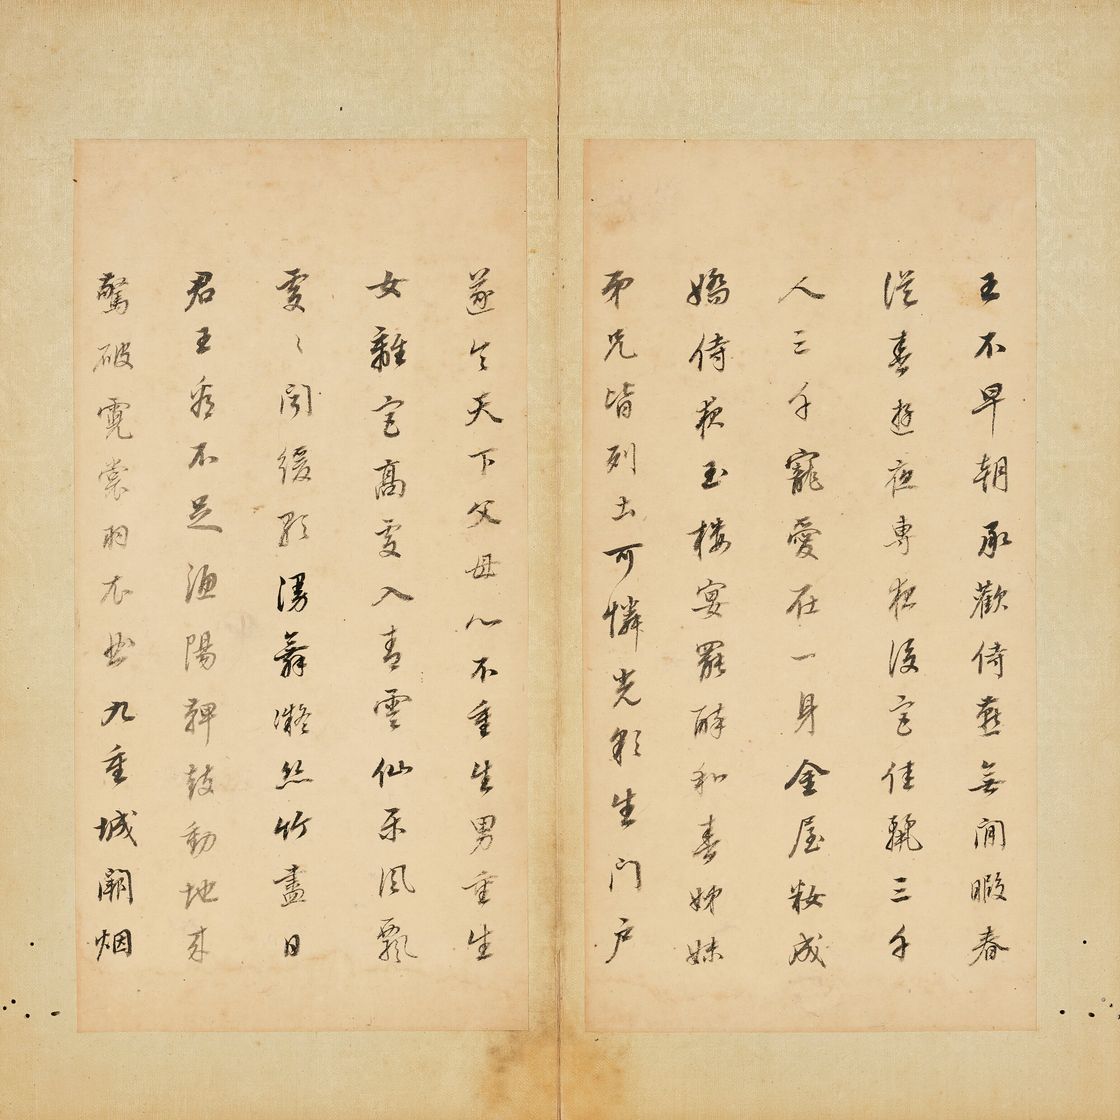 王不早朝承歡侍燕無間暇春
從春遊夜專夜後宮佳麗三千
人三千寵愛在一身金屋籹成
嬌侍夜玉樓宴罷醉和春姊妹
弟兄皆列土可憐光彩生門戶
遂令天下父母心不重生男重生
女離宮高處入青雲仙樂風飄
處々聞緩歌漫舞凝絲竹盡日
君王看不足漁陽鞞鼓動地來
驚破霓裳羽衣曲九重城闕烟